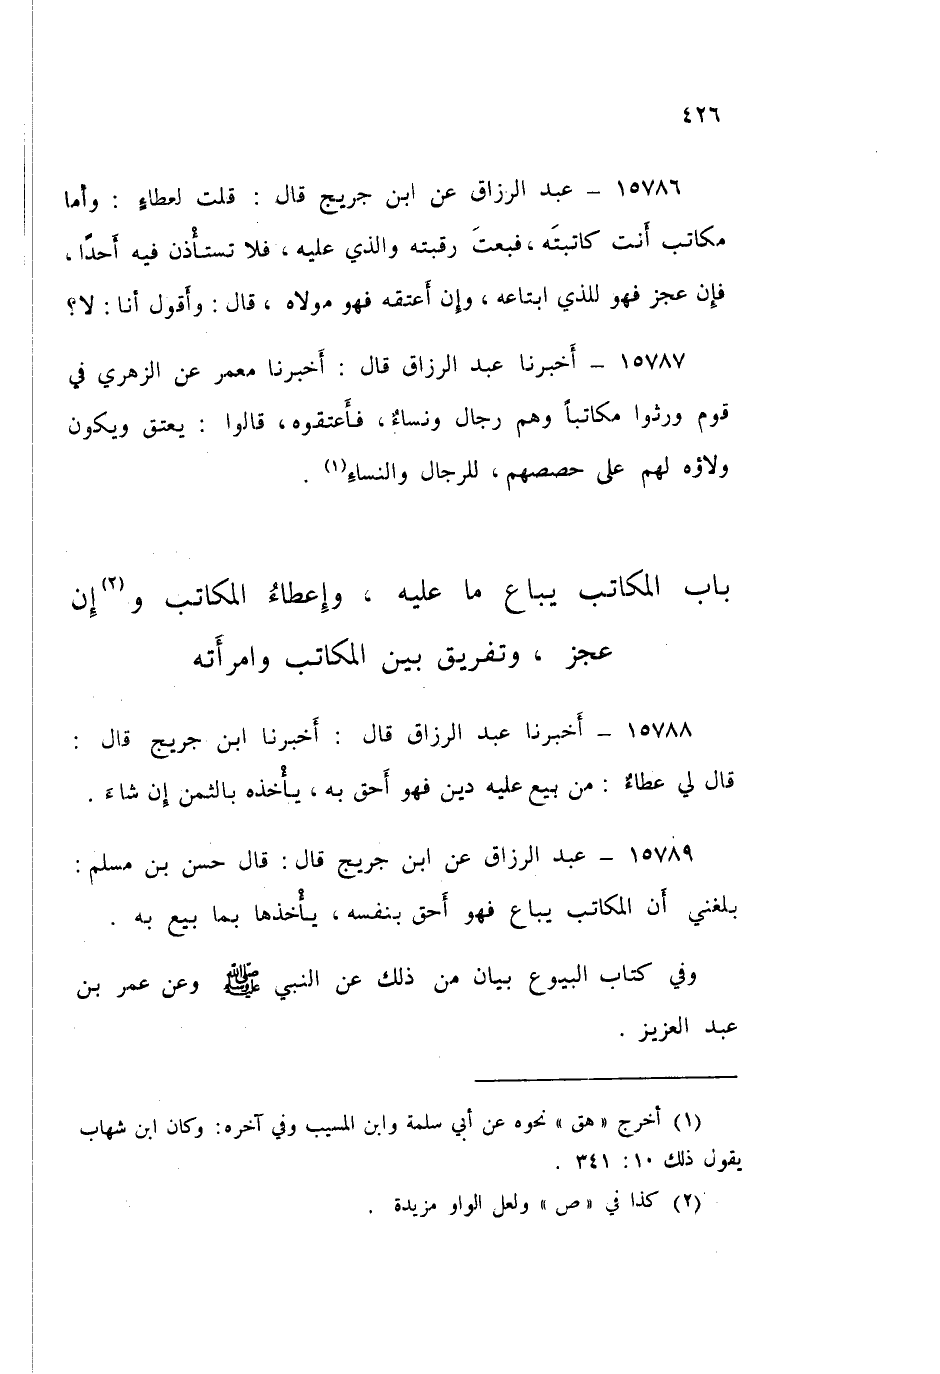 ٤٢٦
١٥٧٨٦ – عبد الرزاق عن ابن جريج قال : قلت لعطاءٍ : وأما
مكاتب أَنت كاتبتَه ، فبعتَ رقبته والذي عليه ، فلا تستأْذن فيه أَحدًا ،
فإن عجز فهو للذي ابتاعه ، وإن أَعتقه فهو مولاه ، قال : وأَقول أنا : لا؟
١٥٧٨٧ – أَخبرنا عبد الرزاق قال : أَخبرنا معمر عن الزهري في
قوم ورثوا مكاتباً وهم رجال ونساءٌ ، فأَعتقوه ، قالوا : يعتق ويكون
ولاؤه لهم على حصصهم ، للرجال والنساءِ(١) .
باب المكاتب يباع ما عليه ، وإعطاءُ المكاتب و(٢)إن
عجز ، وتفريق بين المكاتب وامرأَته
١٥٧٨٨ – أَخبرنا عبد الرزاق قال : أَخبرنا ابن جريج قال :
قال لي عطاءٌ : من بيع عليه دين فهو أَحق به ، يأْخذه بالثمن إن شاءَ .
١٥٧٨٩ – عبد الرزاق عن ابن جريج قال : قال حسن بن مسلم :
بلغني أن المكاتب يباع فهو أَحق بنفسه ، يأْخذها بما بيع به .
وفي كتاب البيوع بيان من ذلك عن النبي ﷺ وعن عمر بن
عبد العزيز .
(١) أخرج « هق » نحوه عن أبي سلمة وابن المسيب وفي آخره : وكان ابن شهاب
يقول ذلك ١٠ : ٣٤١ .
(٢) كذا في « ص » ولعل الواو مزيدة .